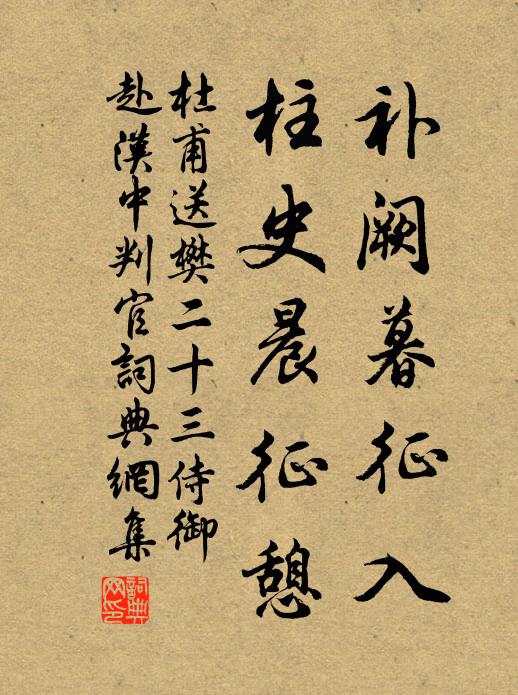 补阙暮征入
柱史晨征憩
杜甫送樊二十三侍御
赴漢中判官詞典網集
詞典網印